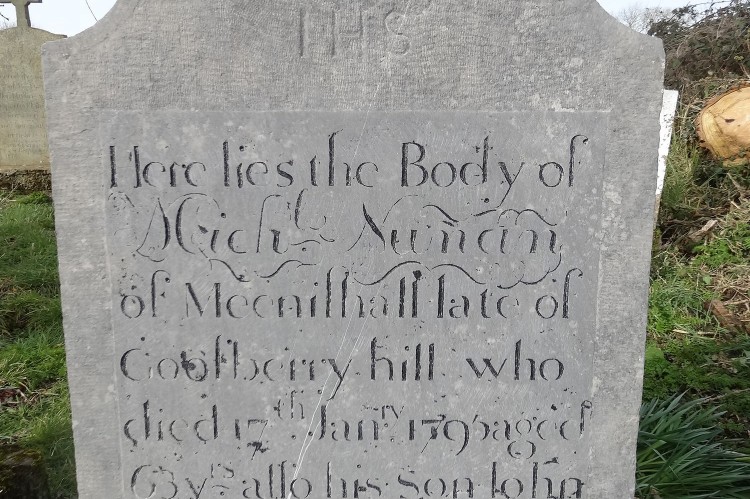 IHS
Here lies the Body of
Mich.l Nunan
of Meenilhall late of
Goosberry hill who
died 17th Jan.ry 1795 aged
63 y.rs also his Son John